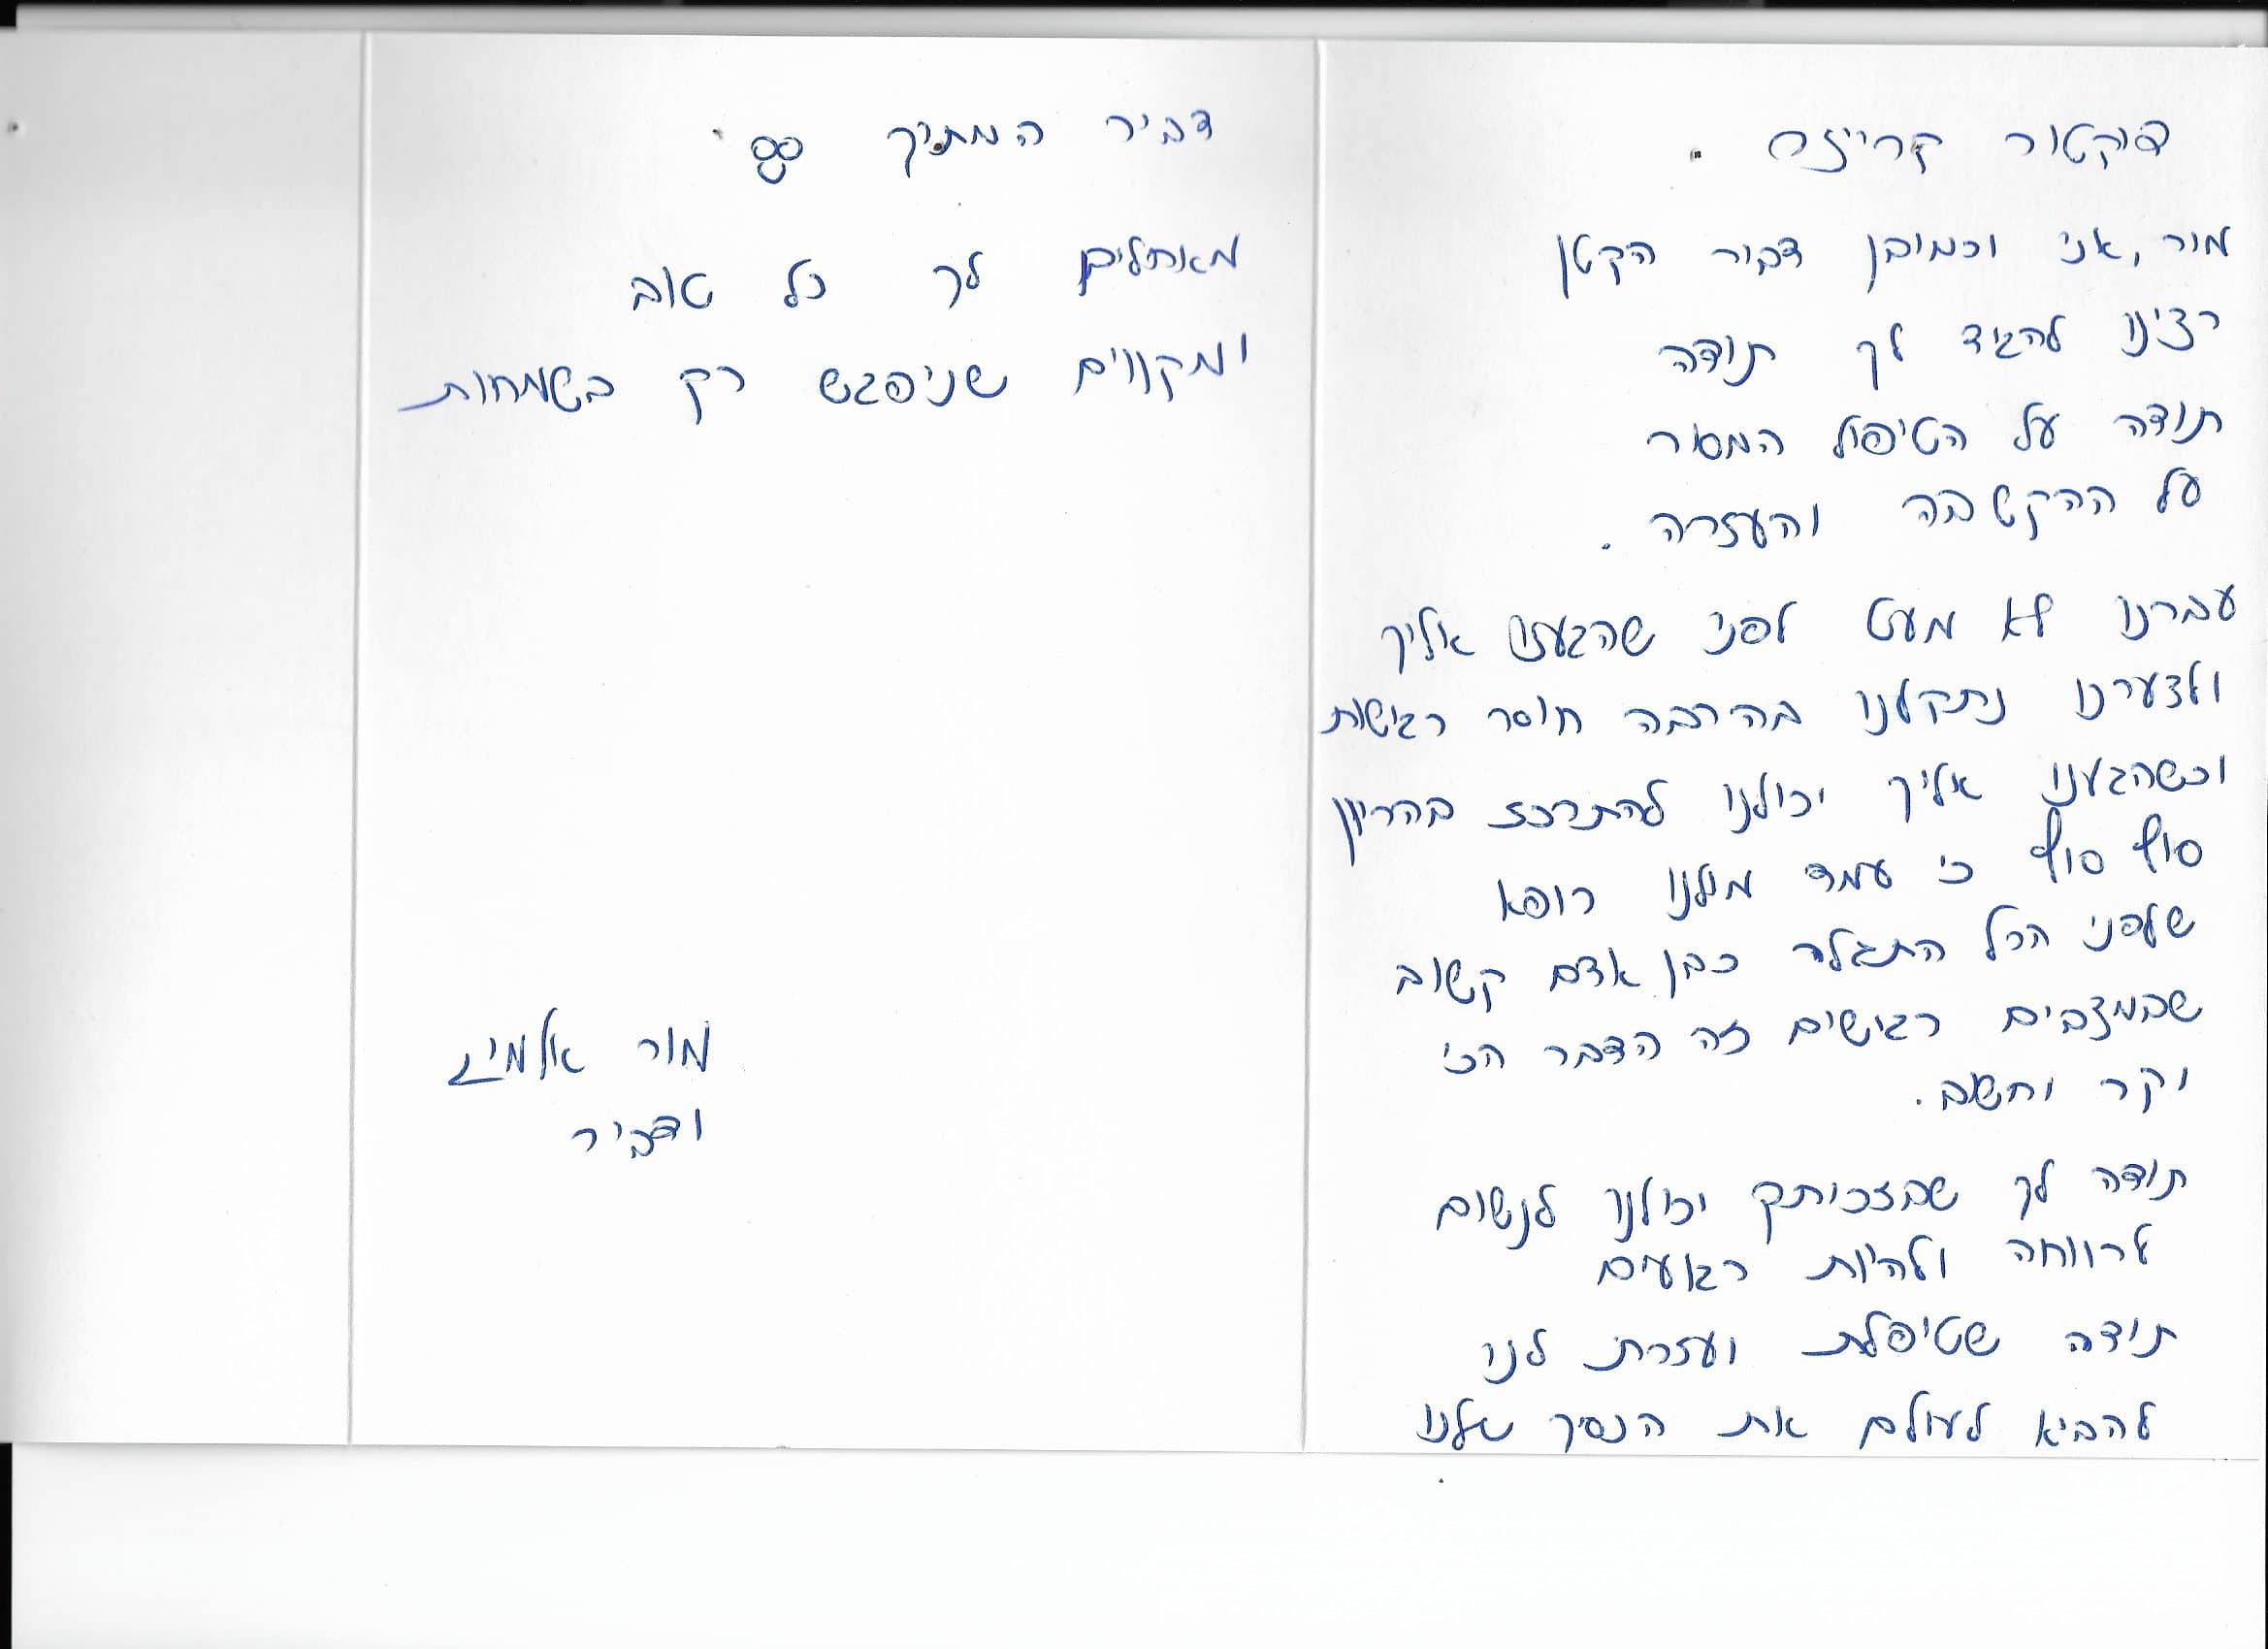 דוקטור קרייזר.
מור, אני וכמובן דביר הקטן
רצינו להגיד לך תודה
תודה על הטיפול המסור
על ההקשבה והעזרה.
עברנו לא מעט לפני שהגענו אליך
ולצערנו נתקלנו בהרבה חוסר רגישות
וכשהגענו אליך יכולנו להתרכז בהריון
סוף סוף כי עמד מולנו רופא
שלפני הכל התגלה כבן אדם קשוב
שבמצבים רגישים זה הדבר הכי
יקר וחשוב.
תודה לך שבזכותך יכולנו לנשום
לרווחה ולהיות רגועים
תודה שטיפלת ועזרת לנו
להביא לעולם את הנסיך שלנו
דביר המתוק
מאחלים לך כל טוב
ומקווים שניפגש רק בשמחות
מור
ודביר